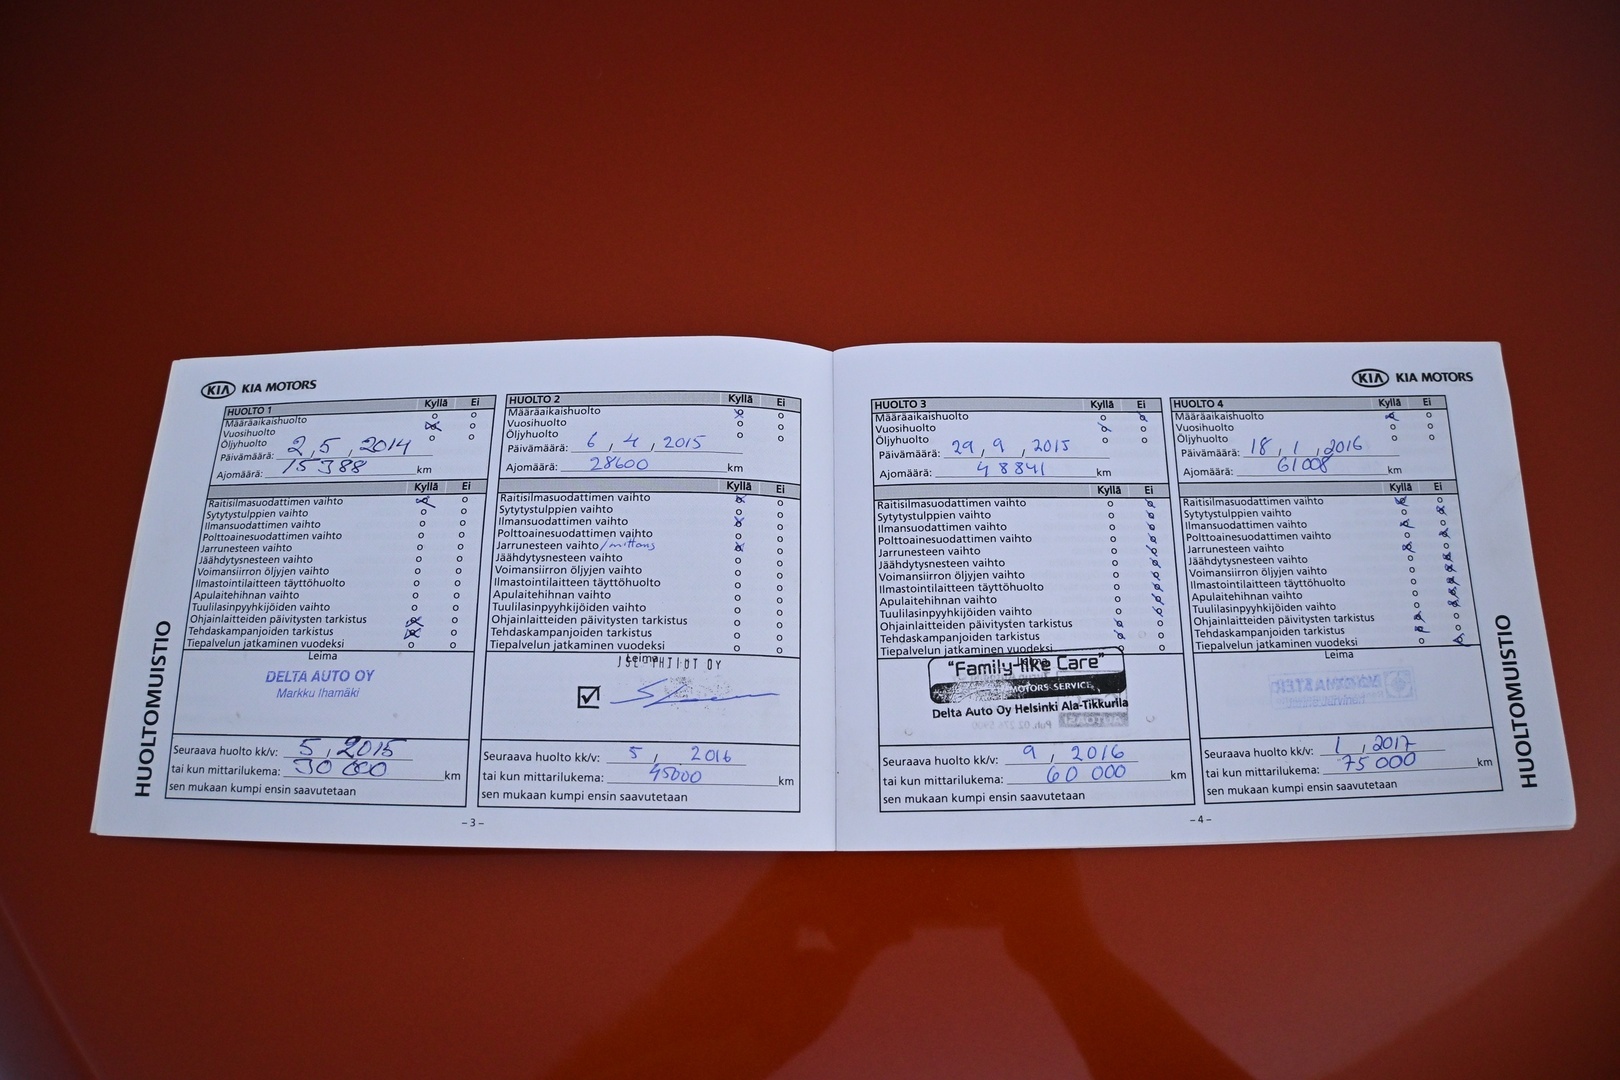 KIA KIA MOTORS
HUOLTO 1 Kyllä Ei
Määräaikaishuolto
Vuosihuolto
Öljyhuolto
Päivämäärä: 2,5,2014
Ajomäärä: 15388 km
Kyllä Ei
Raitisilmasuodattimen vaihto
Sytytystulppien vaihto
Ilmansuodattimen vaihto
Polttoainesuodattimen vaihto
Jarrunesteen vaihto
Jäähdytysnesteen vaihto
Voimansiirron öljyjen vaihto
Ilmastointilaitteen täyttöhuolto
Apulaitehihnan vaihto
Tuulilasinpyyhkijöiden vaihto
Ohjainlaitteiden päivitysten tarkistus
Tehdaskampanjoiden tarkistus
Tiepalvelun jatkaminen vuodeksi
Leima
DELTA AUTO OY
Markku Ihamäki
Seuraava huolto kk/v: 5, 2015
tai kun mittarilukema: 30 000 km
sen mukaan kumpi ensin saavutetaan
HUOLTOMUISTIO
HUOLTO 2 Kyllä Ei
Määräaikaishuolto
Vuosihuolto
Öljyhuolto
Päivämäärä: 6, 4, 2015
Ajomäärä: 28600 km
Kyllä Ei
Raitisilmasuodattimen vaihto
Sytytystulppien vaihto
Ilmansuodattimen vaihto
Polttoainesuodattimen vaihto
Jarrunesteen vaihto /mittaus
Jäähdytysnesteen vaihto
Voimansiirron öljyjen vaihto
Ilmastointilaitteen täyttöhuolto
Apulaitehihnan vaihto
Tuulilasinpyyhkijöiden vaihto
Ohjainlaitteiden päivitysten tarkistus
Tehdaskampanjoiden tarkistus
Tiepalvelun jatkaminen vuodeksi
Leima
OY
Seuraava huolto kk/v: 5, 2016
tai kun mittarilukema: 45000 km
sen mukaan kumpi ensin saavutetaan
– 3 –
KIA KIA MOTORS
HUOLTO 3 Kyllä Ei
Määräaikaishuolto
Vuosihuolto
Öljyhuolto
Päivämäärä: 29, 9, 2015
Ajomäärä: 48841 km
Kyllä Ei
Raitisilmasuodattimen vaihto
Sytytystulppien vaihto
Ilmansuodattimen vaihto
Polttoainesuodattimen vaihto
Jarrunesteen vaihto
Jäähdytysnesteen vaihto
Voimansiirron öljyjen vaihto
Ilmastointilaitteen täyttöhuolto
Apulaitehihnan vaihto
Tuulilasinpyyhkijöiden vaihto
Ohjainlaitteiden päivitysten tarkistus
Tehdaskampanjoiden tarkistus
Tiepalvelun jatkaminen vuodeksi
Leima
"Family-like Care"
MOTORS SERVICE
Delta Auto Oy Helsinki Ala-Tikkurila
Seuraava huolto kk/v: 9, 2016
tai kun mittarilukema: 60 000 km
sen mukaan kumpi ensin saavutetaan
HUOLTO 4 Kyllä Ei
Määräaikaishuolto
Vuosihuolto
Öljyhuolto
Päivämäärä: 18, 1, 2016
Ajomäärä: 61008 km
Kyllä Ei
Raitisilmasuodattimen vaihto
Sytytystulppien vaihto
Ilmansuodattimen vaihto
Polttoainesuodattimen vaihto
Jarrunesteen vaihto
Jäähdytysnesteen vaihto
Voimansiirron öljyjen vaihto
Ilmastointilaitteen täyttöhuolto
Apulaitehihnan vaihto
Tuulilasinpyyhkijöiden vaihto
Ohjainlaitteiden päivitysten tarkistus
Tehdaskampanjoiden tarkistus
Tiepalvelun jatkaminen vuodeksi
Leima
Seuraava huolto kk/v: 1, 2017
tai kun mittarilukema: 75 000 km
sen mukaan kumpi ensin saavutetaan
HUOLTOMUISTIO
– 4 –